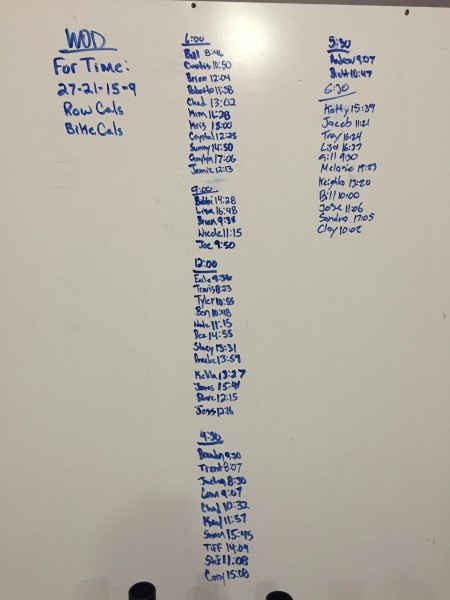 WOD
For Time:
27-21-15-9
Row Cals
Bike Cals
6:00
Bill 8:46
Curtis 10:50
Brian 12:04
Roberto 11:58
Chad 13:02
Kris 13:00
Crystal 12:25
Sunny 14:50
17:06
Jamie 12:13
9:00
Bobbi 14:28
Lisa 16:48
Brian 9:38
Nicole 11:15
Joe 9:50
12:00
Travis 8:23
Tyler 10:55
Ben 10:48
Nate 11:15
Dez 14:55
Stacy 13:31
13:59
Kelila 13:27
James 15:41
Dave 12:15
Jess 12:16
4:30
Brandon 9:30
Trent 8:07
8:30
9:07
Chad 10:32
11:57
15:45
Tiff 14:09
11:08
Cory 15:08
5:30
Andrew 9:07
10:47
6:30
Kathy 15:39
Jacob 11:21
Troy 16:24
Lisa 16:37
Gill 9:30
Melanie 19:23
13:20
Bill 10:00
Jose 11:06
Sandra 17:05
Clay 10:02